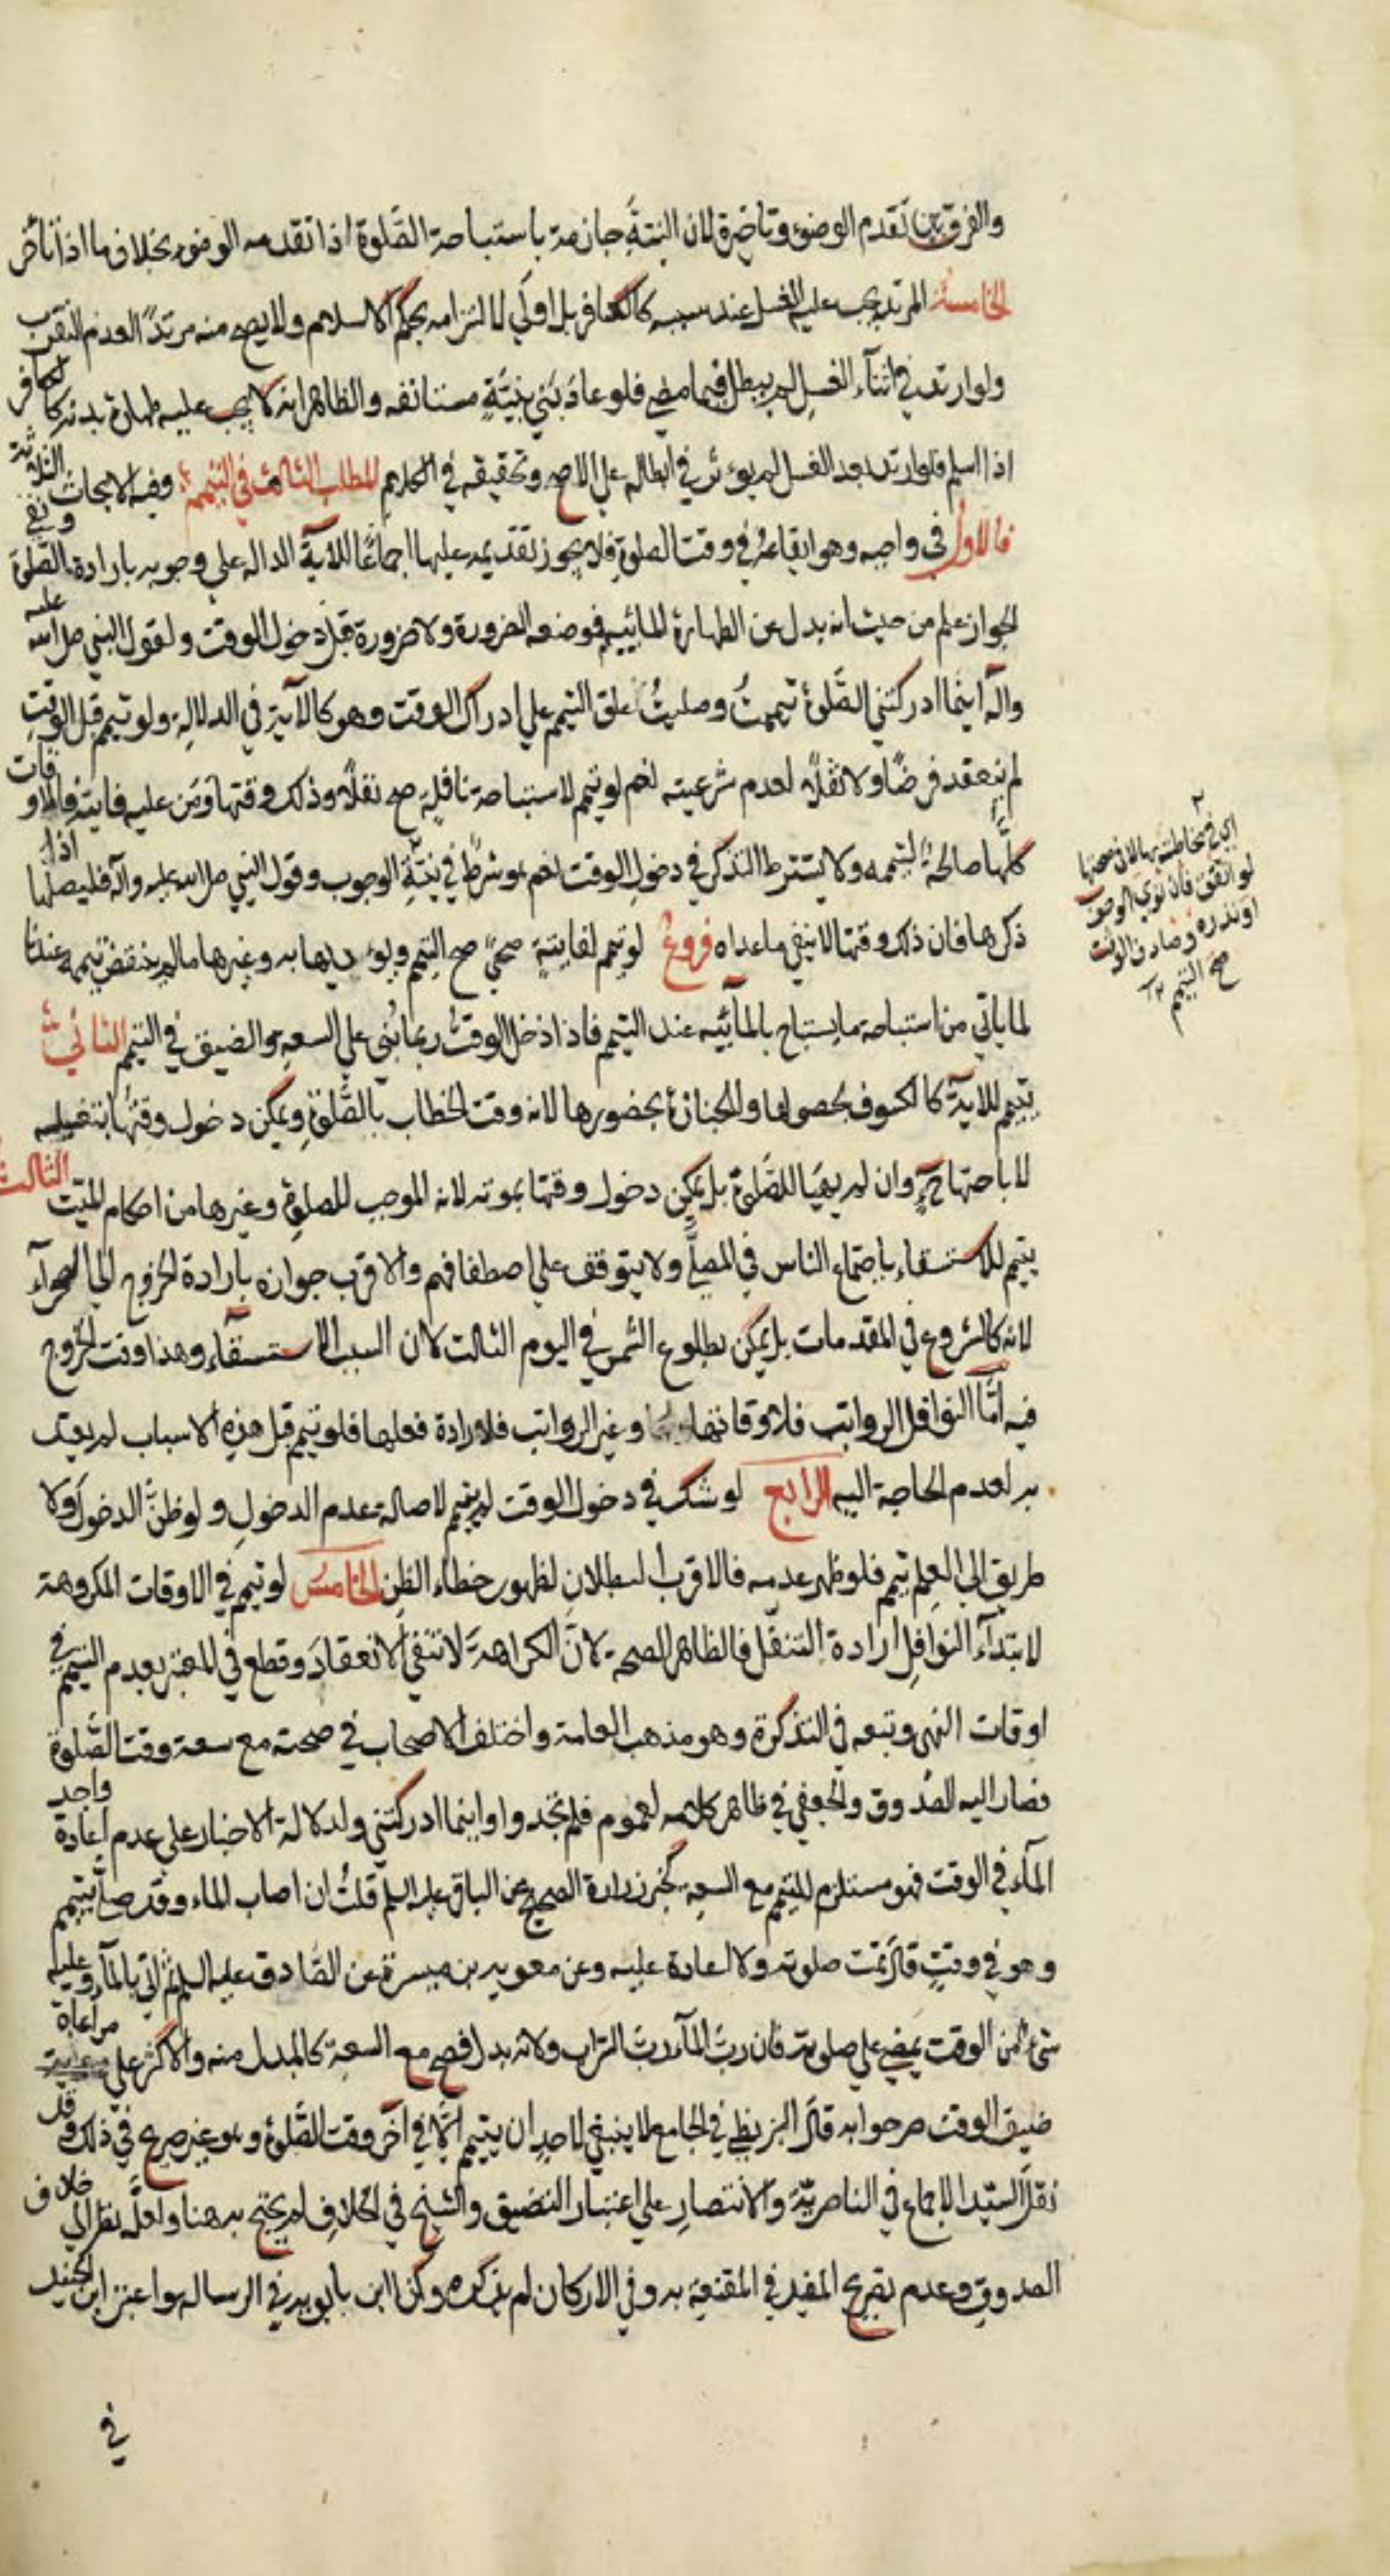 والفرق بين تقدم الوضوء وتاخره لان النية جازمة باستباحة الصلوة اذا تقدمه الوضوء بخلاف ما اذا تاخر
الخامسة المرتد يجب عليه الغسل عند سببه كالكافر بل اولي لالتزامه بحكم الاسلام ولا يصح منه مرتدا لعدم التقرب
ولو ارتد في اثناء الغسل لم يبطل فيما مضي فلو عاد بني بنية مستانفه والظاهر انه لا يجب عليه طهارة بدنه كالكافر
اذا اسلم فلو ارتد بعد الغسل لم يوثر في ابطاله علي الاصح وتحقيقه في الكلام المطلب الثالث في التيمم وفيه الابحاث الثلاثة
فالاول في واجبه وهو ايقاعه في وقت الصلوة فلا يجوز تقديمه عليها اجماعا للاية الداله علي وجوبه بارادة الصلوة ونفي
الجواز علم من حيث انه بدل عن الطهارة المائيه فوضعه الضرورة ولا ضرورة قبل دخول الوقت ولقول النبي صلي الله عليه
واله اينما ادركتني الصلوة تيممت وصليت علق التيمم علي ادراك الوقت وهو كالاية في الدلالة ولو تيمم قبل الوقت
لم ينعقد فرضا ولا نفلا لعدم شرعيته نعم لو تيمم لاستباحة نافلة صح نفلا وذلك وقتها ومن عليه فايتة فالاوقات
كلها صالحة لتيممه ولا يشترط التذكر في دخول الوقت نعم هو شرط في نية الوجوب وقول النبي صلي الله عليه واله فليصلها اذا
ذكرها فان ذلك وقتها لا ينفي ما عداه فروع لو تيمم لفايتة ضحي صح التيمم ويؤديها به وغيرها ما لم ينتقض تيممه عندنا
لما ياتي من استباحة ما يستباح بالمائيه عند التيمم فاذا دخل الوقت ربما بني علي السعة والضيق في التيمم الثاني
يتيمم للاية كالكسوف بحصولها والجنازة بحضورها لانه وقت الخطاب بالصلوة ويمكن دخول وقتها بتغسيله
لاباحتها ح وان لم يهيا للصلوة بل يمكن دخول وقتها بموته لانه الموجب للصلوة وغيرها من احكام الميت الثالث
يتيمم للاستسقاء باجتماع الناس في المصلي ولا يتوقف علي اصطفافهم والاقرب جوازه بارادة الخروج الي الصحراء
لانه كالشروع في المقدمات بل يمكن بطلوع الشمس في اليوم الثالث لان السبب الاستسقاء وهذا وقت الخروج
فيه اما النوافل الرواتب فلاوقاتها وغير الرواتب فلارادة فعلها فلو تيمم قبل هذه الاسباب لم يعتد
به لعدم الحاجة اليه الرابع لو شك في دخول الوقت لم يتيمم لاصالة عدم الدخول ولو ظن الدخول ولا
طريق الي العلم تيمم فلو ظهر عدمه فالاقرب البطلان لظهور خطاء الظن الخامس لو تيمم في الاوقات المكروهة
لابتداء النوافل ارادة التنفل فالظاهر الصحه لان الكراهة لا تنفي الانعقاد وقطع في المعتبر بعدم التيمم في
اوقات النهي وتبعه في التذكرة وهو مذهب العامة واختلف الاصحاب في صحته مع سعة وقت الصلوة
فصار اليه الصدوق والجعفي في ظاهر كلامه لعموم فلم تجدوا واينما ادركتني ولدلالة الاخبار علي عدم اعادة واجد
الماء في الوقت فهو مستلزم للتيمم مع السعة كخبر زرارة الصحيح عن الباقر عليه السلم قلت ان اصاب الماء وقد صلي بتيمم
وهو في وقت قال تمت صلوته ولا اعادة عليه وعن معوية بن ميسرة عن الصادق عليه السلم ثم اتي بالماء وعليه
شيء من الوقت يمضي علي صلوته فان رب الماء رب التراب ولانه بدل فصح مع السعة كالمبدل منه والاكثر علي مراعاة
ضيق الوقت صرحوا به قال البزنطي في الجامع لا ينبغي لاحد ان يتيمم الا في اخر وقت الصلوة وهو غير صريح في ذلك وقد
نقل السيد الاجماع في الناصرية والانتصار علي اعتبار التضيق والشيخ في الخلاف لم يحتج به هنا ولعله نظر الي خلاف
الصدوق وعدم تصريح المفيد في المقنعة به وفي الاركان لم يذكره وكذا ابن بابويه في الرسالة واعتبر ابن الجنيد
في
اي في مخاطبته بها لان صحتها
لو اتفق فان نوي الوضوء
او نذره وصادف الوقت
صح التيمم ١٢